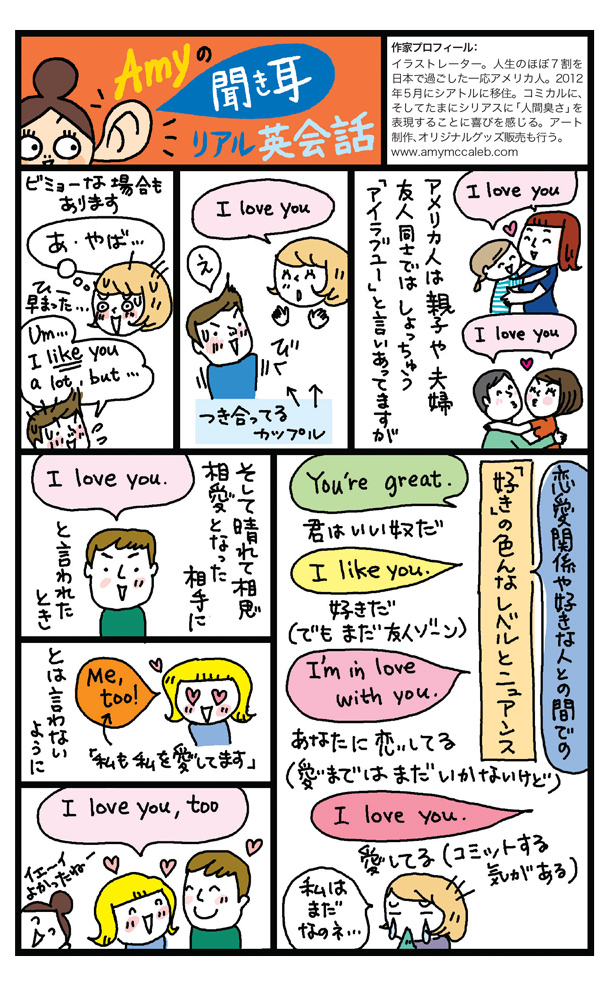 Amyの
聞き耳
リアル英会話
作家プロフィール：
イラストレーター。人生のほぼ７割を
日本で過ごした一応アメリカ人。2012
年５月にシアトルに移住。コミカルに、
そしてたまにシリアスに「人間臭さ」を
表現することに喜びを感じる。アート
制作、オリジナルグッズ販売も行う。
www.amymccaleb.com
I love you
アメリカ人は親子や夫婦
友人同士ではしょっちゅう
「アイラブユー」と言いあってますが
I love you
I love you
え
び
つき合ってる
カップル
ビミョーな場合も
あります
あ・やば…
ひー
早まった…
Um…
I like you
a lot, but…
恋愛関係や好きな人との間での
「好き」の色んなレベルとニュアンス
You're great.
君はいい奴だ
I like you.
好きだ
(でもまだ友人ゾーン)
I'm in love
with you.
あなたに恋してる
(愛まではまだいかないけど)
I love you.
愛してる(コミットする
気がある)
私は
まだ
なのネ…
そして晴れて相思
相愛となった
相手に
I love you.
と言われた
とき
Me,
too!
「私も私を愛してます」
とは言わない
ように
I love you, too
イェ〜イ
よかったねー